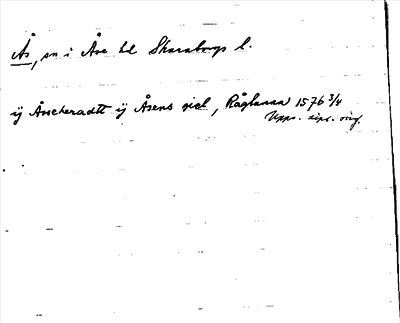 Ås, sn i Åse hd Skaraborgs l.
ÿ Åseheradtt ÿ Åsens giel, Råglanda 1576 3/4
Upps. dipl. orig.